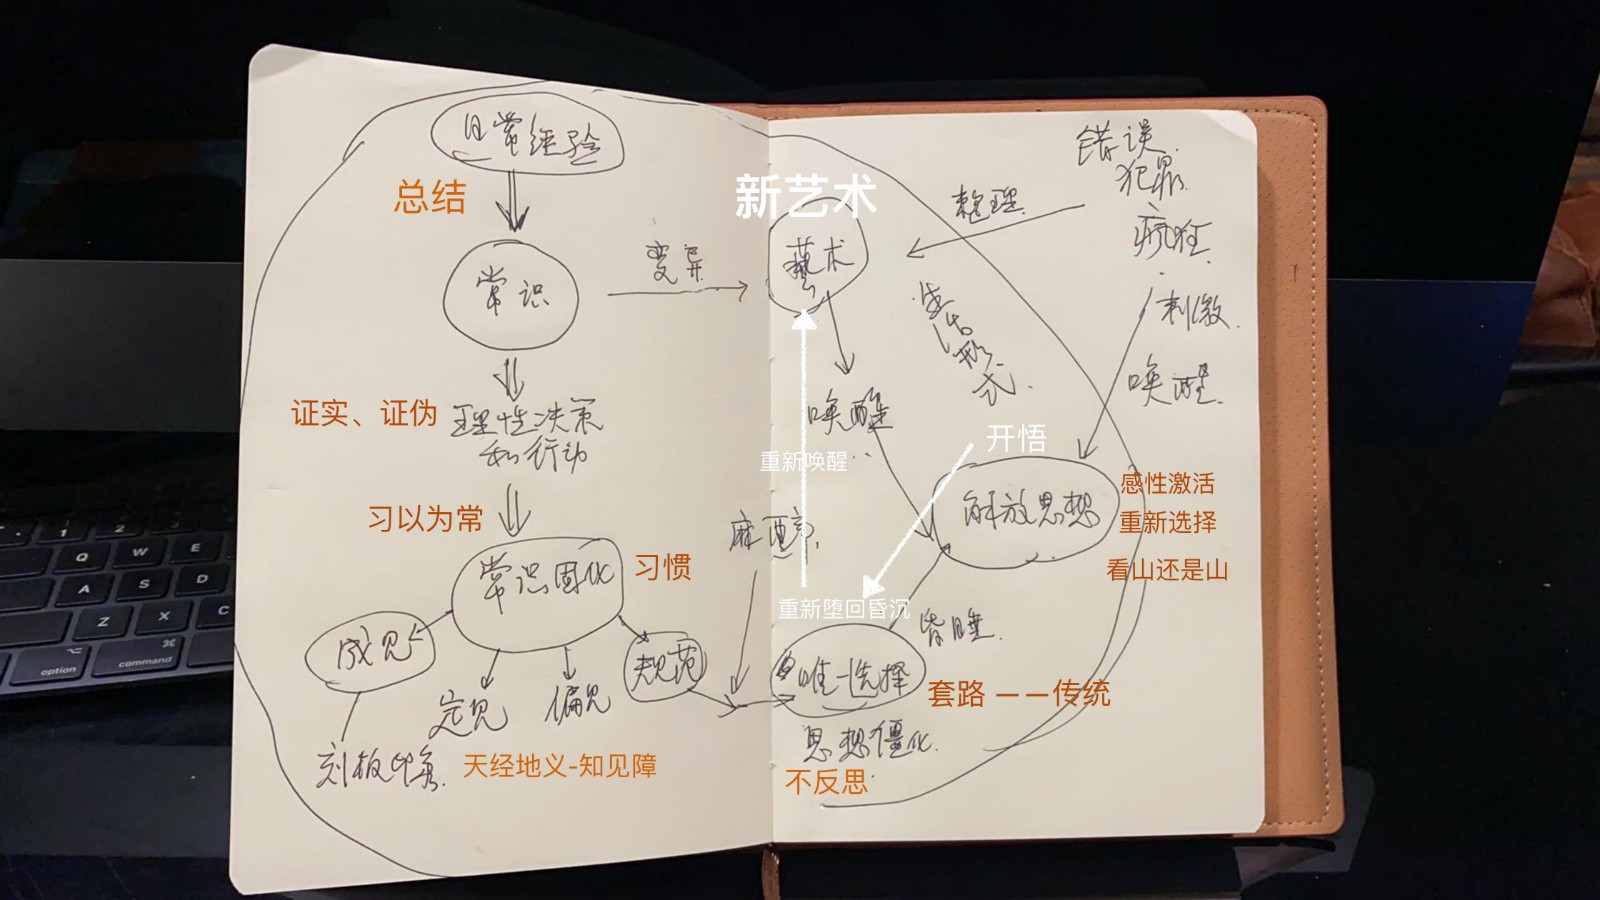 日常经验
总结
常识
证实、证伪
理性决策
和行动
习以为常
常识固化
习惯
成见
规范
定见
偏见
刻板印象
天经地义-知见障
变异
新艺术
藝术
整理
错误
犯罪
疯狂
刺激
唤醒
生活形式
唤醒
重新唤醒
开悟
解放思想
感性激活
重新选择
看山还是山
麻醉
重新堕回昏沉
昏睡
唯一选择
套路 ——传统
思想僵化
不反思
Q
W
E
A
S
D
Z
X
C
option
⌘
command